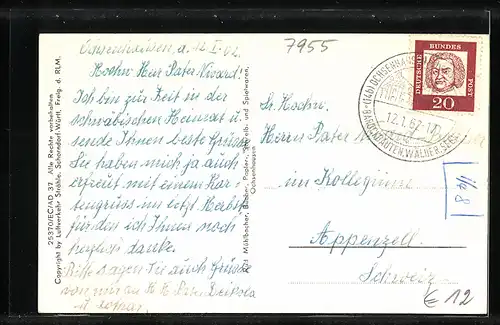 7955
Ochsenhausen, d. 12.I.62
Hochw. Herr Pater Nivard!
Ich bin zur Zeit in der
schwäbischen Heimat u.
sende Ihnen beste Grüsse
Sie haben mich ja auch
erfreut mit einem Kar-
tengruss im letzt. Herbst
für den ich Ihnen noch
herzlich danke.
Bitte sagen Sie auch Grüsse
von mir an H. H. Pater
u.
25370/EC/AD 37. Alle Rechte vorbehalten
Copyright by Luftverkehr Strähle, Schorndorf-Württ. Freig. d. RLM.
Mühlbacher, Bücher, Papier-, Schreib- und Spielwaren,
Ochsenhausen
DEUTSCHE BUNDESPOST
20
(14b) OCHSENHAUSEN
12.1.62-17
Sr. Hochw.
Herrn Pater
im Kollegium
Appenzell
Schweiz
148
€12